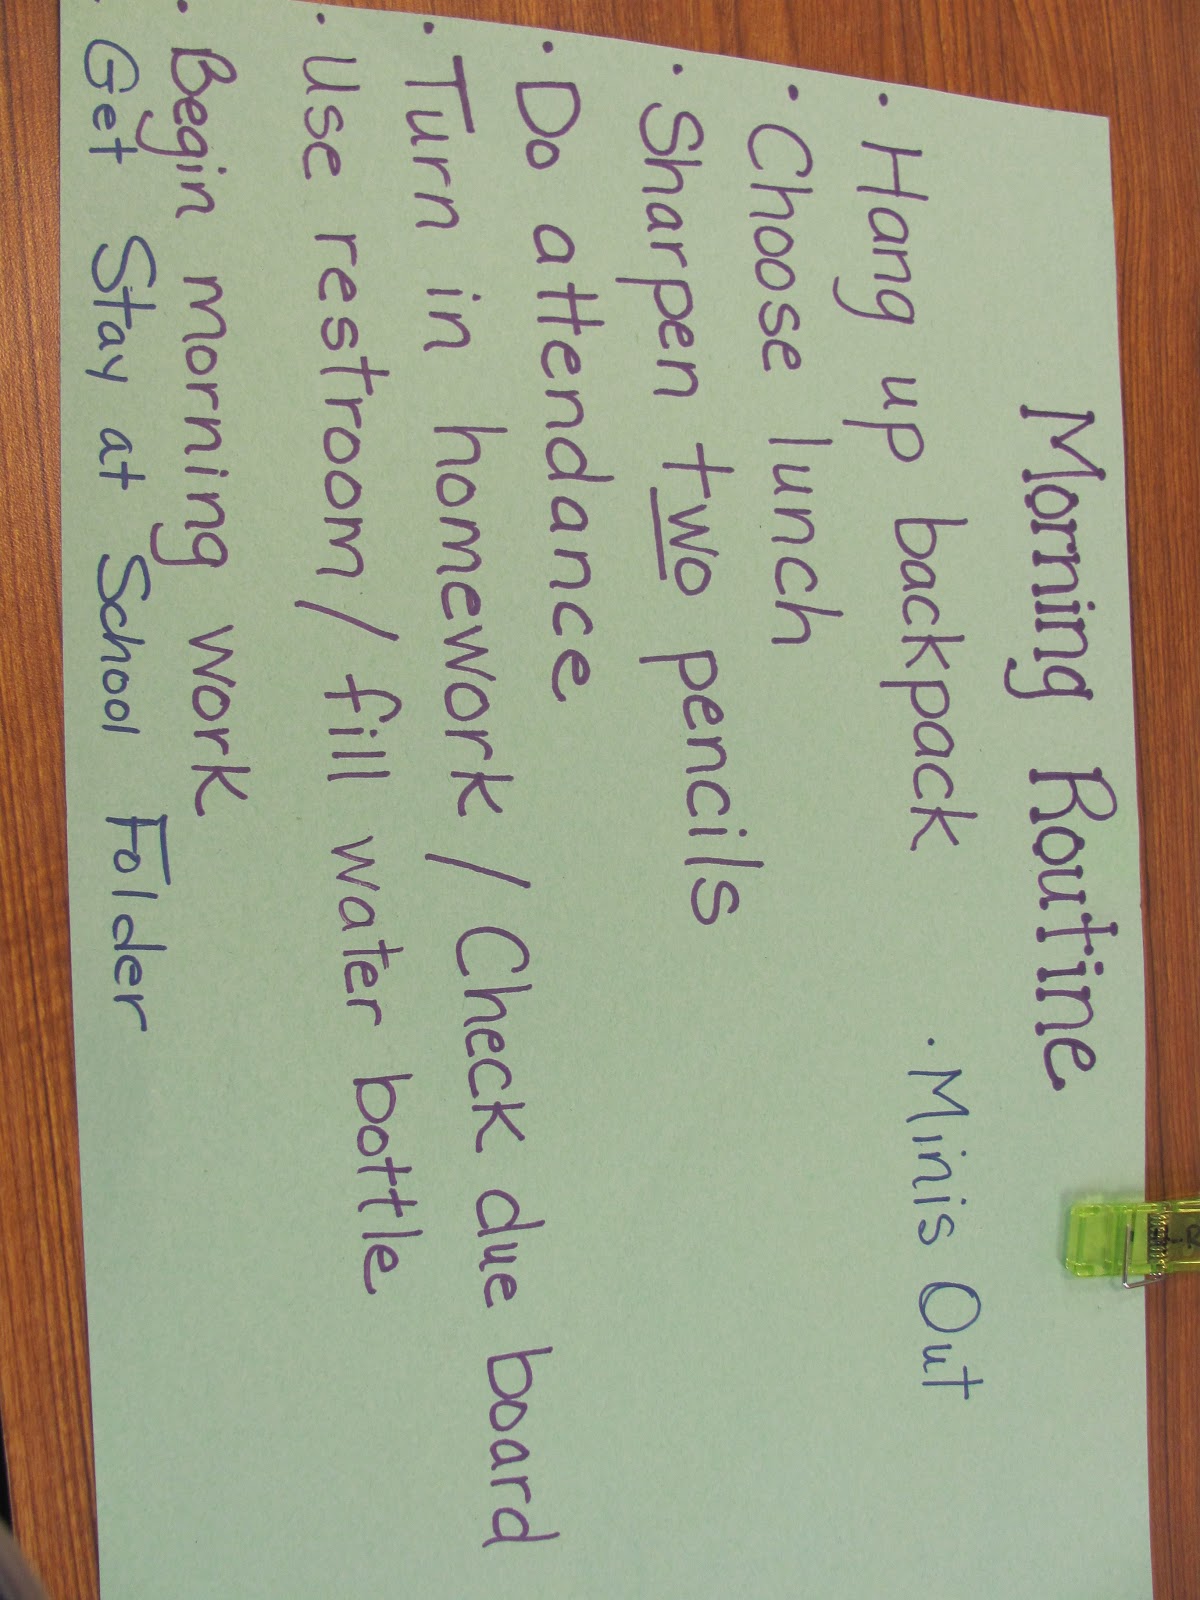 Morning Routine
• Hang up backpack • Minis Out
• Choose lunch
• Sharpen two pencils
• Do attendance
• Turn in homework / Check due board
• Use restroom / fill water bottle
• Begin morning work
• Get Stay at School Folder